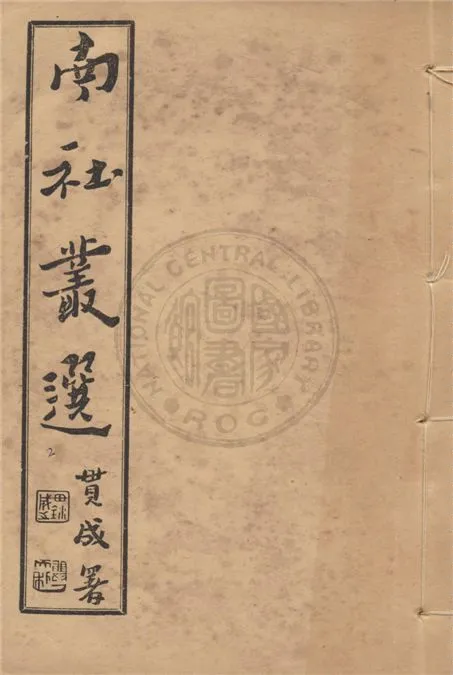 南社叢選
2
貫成署
NATIONAL CENTRAL LIBRARY
ROC
國家圖書館